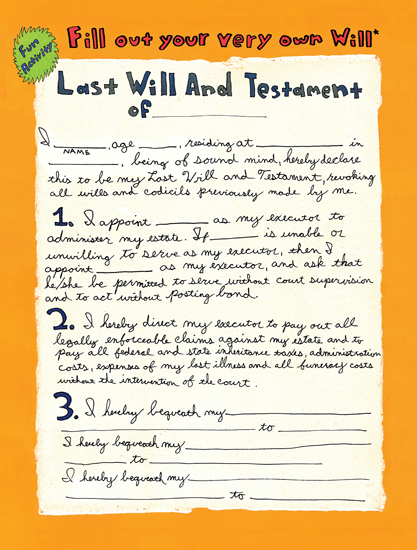 Fun Activity!
Fill out your very own Will*
Last Will And Testament
of
I , age , residing at in
NAME
, being of sound mind, hereby declare
this to be my Last Will and Testament, revoking
all wills and codicils previously made by me.
1. I appoint as my executor to
administer my estate. If is unable or
unwilling to serve as my executor, then I
appoint as my executor, and ask that
he/she be permitted to serve without court supervision
and to act without posting bond.
2. I hereby direct my executor to pay out all
legally enforceable claims against my estate and to
pay all federal and state inheritance taxes, administration
costs, expenses of my last illness and all funerary costs
without the intervention of the court.
3. I hereby bequeath my
to
I hereby bequeath my
to
I hereby bequeath my
to